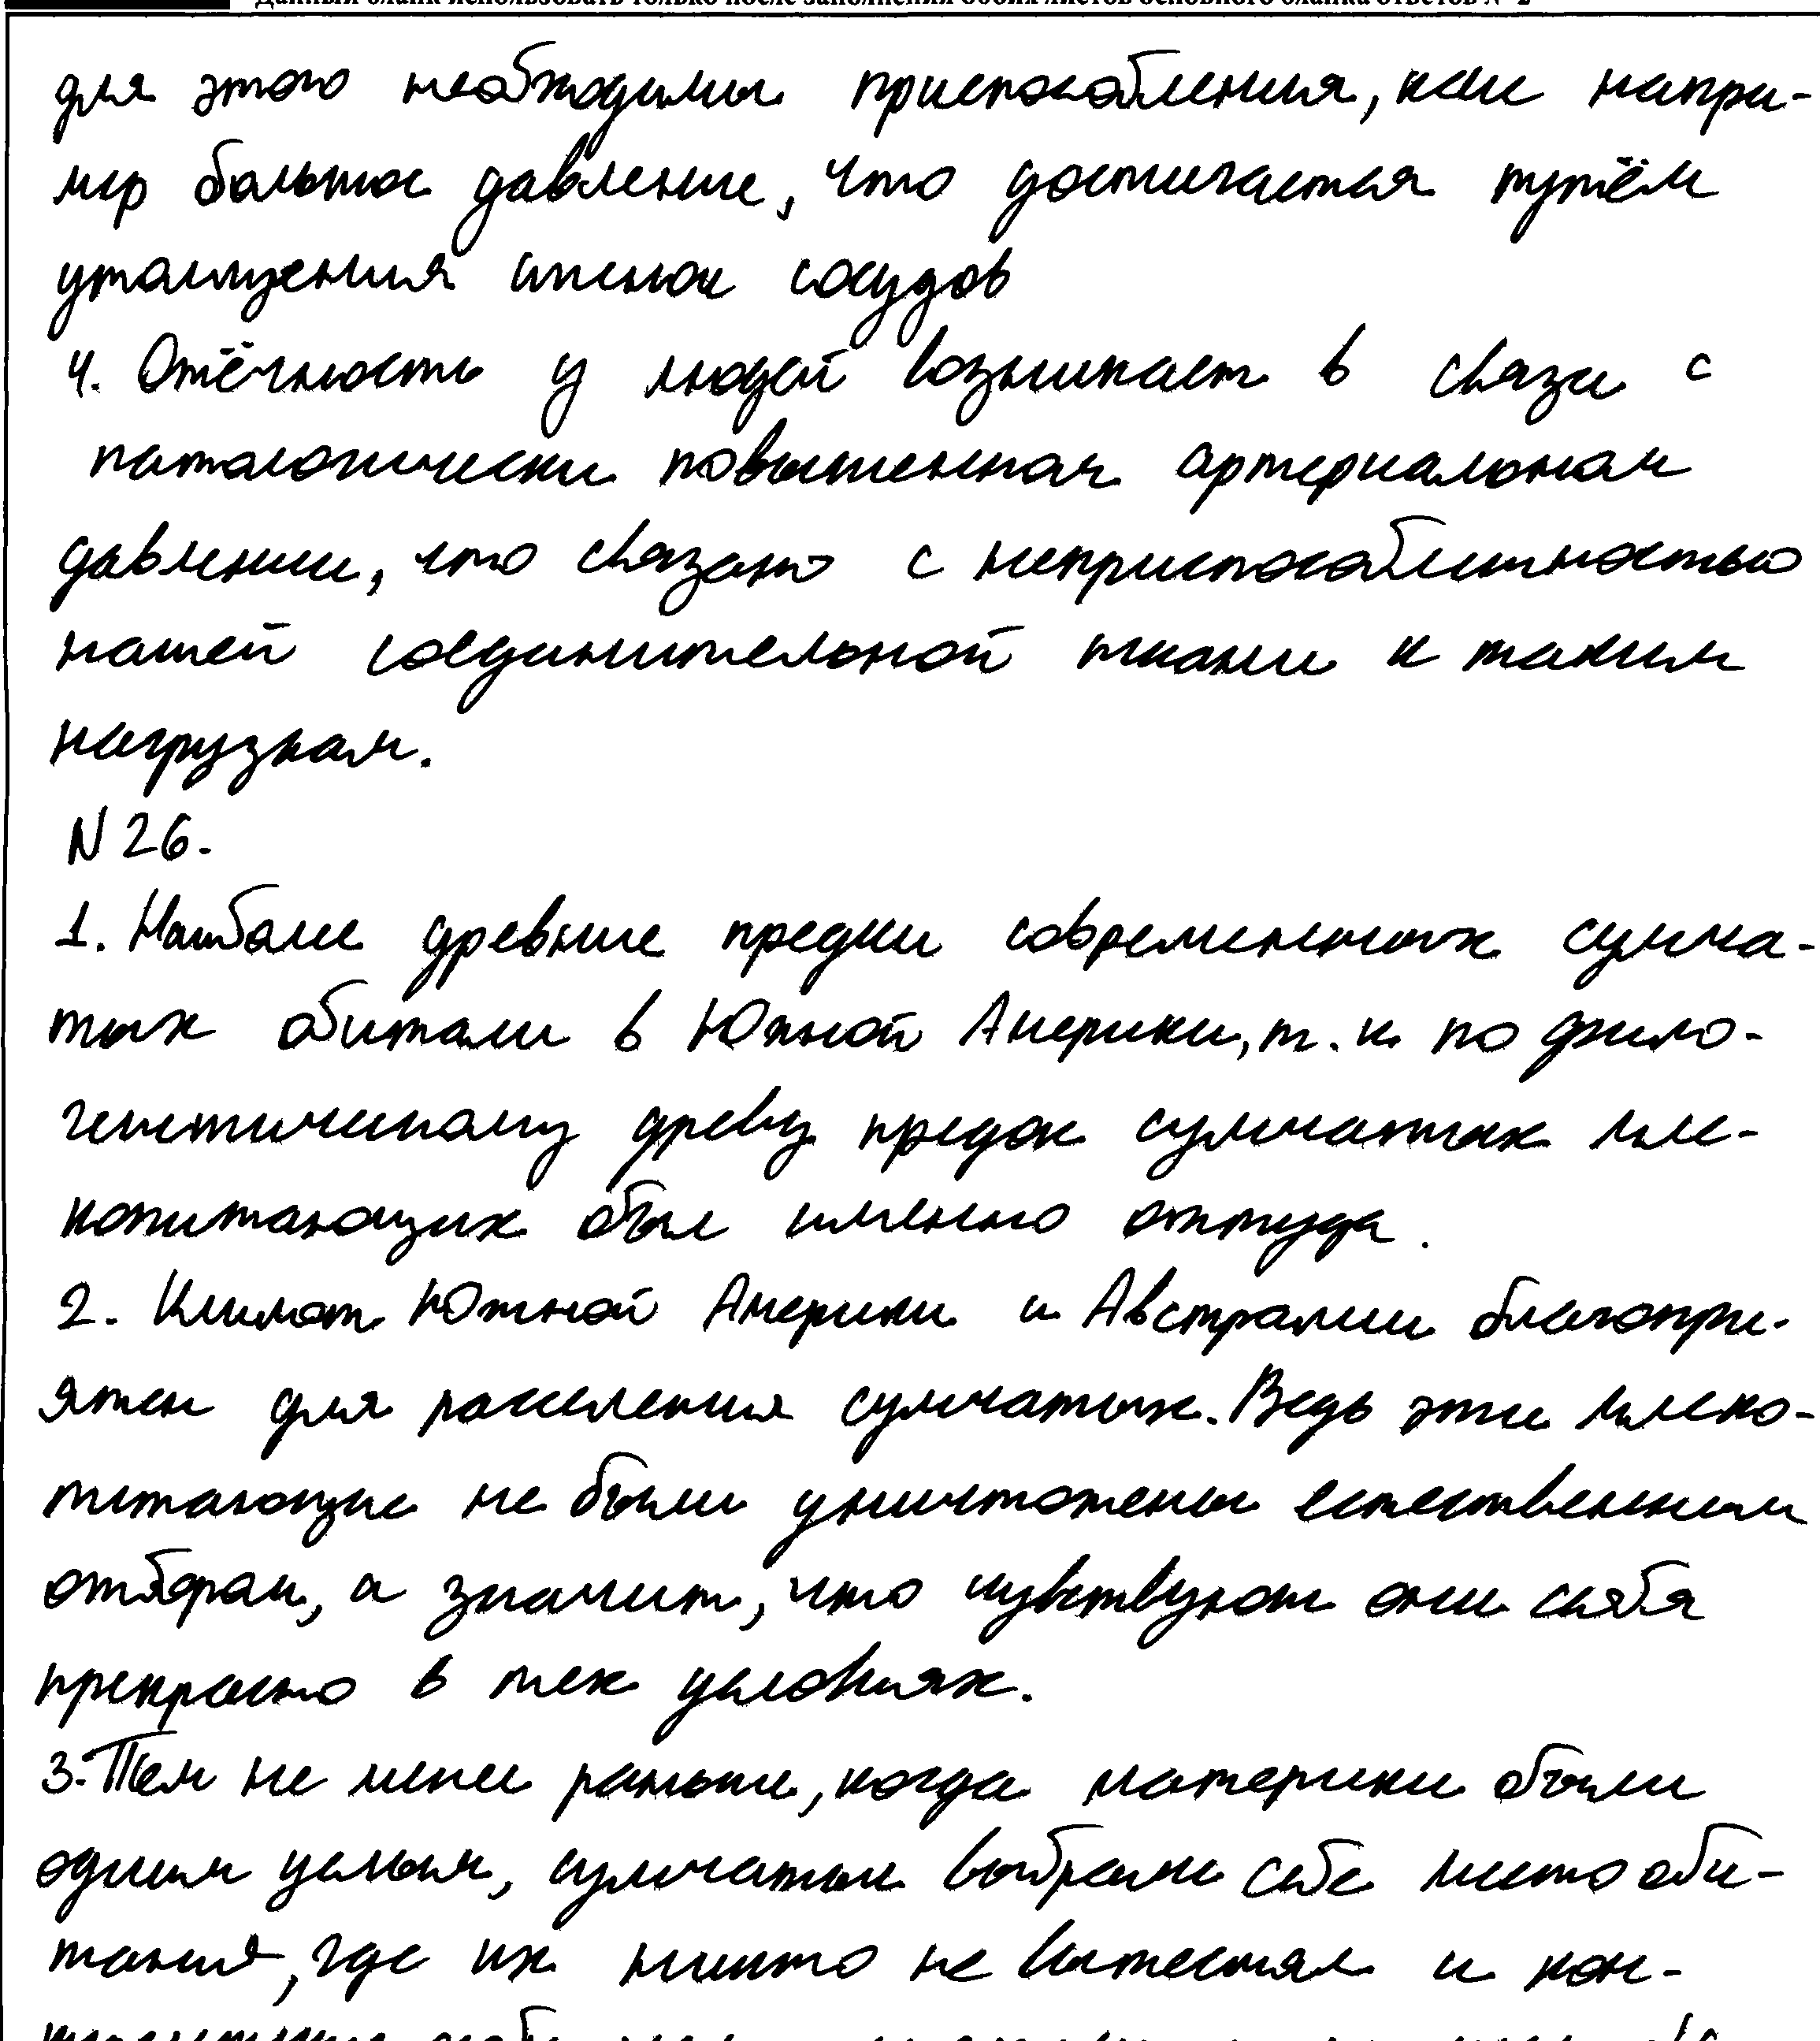 Данный бланк использовать только после заполнения обоих листов основного бланка ответов № 2
для этого необходимы приспособления, как напри-
мер большое давление, что достигается путём
утолщения стенок сосудов
4. Отёчность у людей возникает в связи с
патологически повышенном артериальном
давлении, что связано с неприспособленностью
нашей соединительной ткани к таким
нагрузкам.
N 26.
1. Наиболее древние предки современных сумча-
тых обитали в Южной Америки, т. к. по фило-
генетическому древу предок сумчатых мле-
копитающих был именно оттуда.
2. Климат Южной Америки и Австралии благопри-
ятен для расселения сумчатых. Ведь эти млеко-
питающие не были уничтожены естественным
отбором, а значит, что чувствуют они себя
прекрасно в тех условиях.
3. Тем не менее раньше, когда материки были
одним целым, сумчатые выбрали себе место оби-
тания, где их никто не вытеснял и кон-